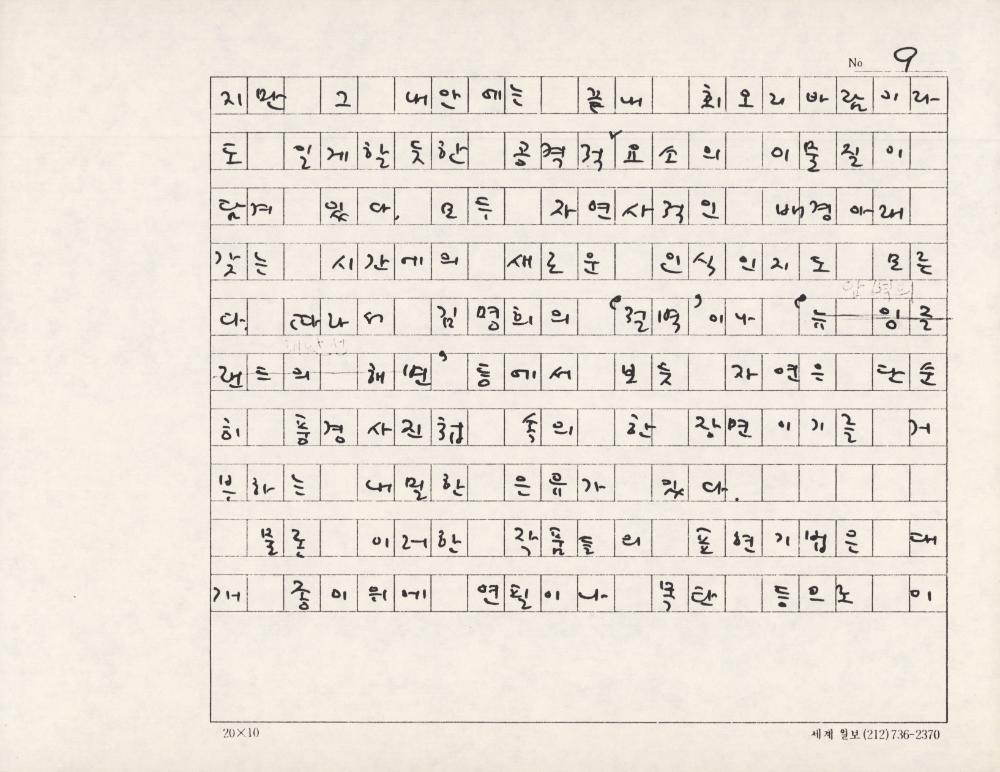 No 9
지만 그 내안에는 끝내 회오리바람이라
도 일게할듯한 공격적 요소의 이물질이
담겨 있다. 모두 자연사적인 배경아래
갖는 시간에의 새로운 인식인지도 모른
다. 따라서 김명희의 '절벽'이나 '뉴 잉글
랜드의 해변' 등에서 보듯 자연은 단순
히 풍경사진첩 속의 한 장면이기를 거
부하는 내밀한 은유가 있다.
물론 이러한 작품들의 표현기법은 대
개 종이위에 연필이나 목탄 등으로 이
20×10
세계 일보 (212) 736-2370